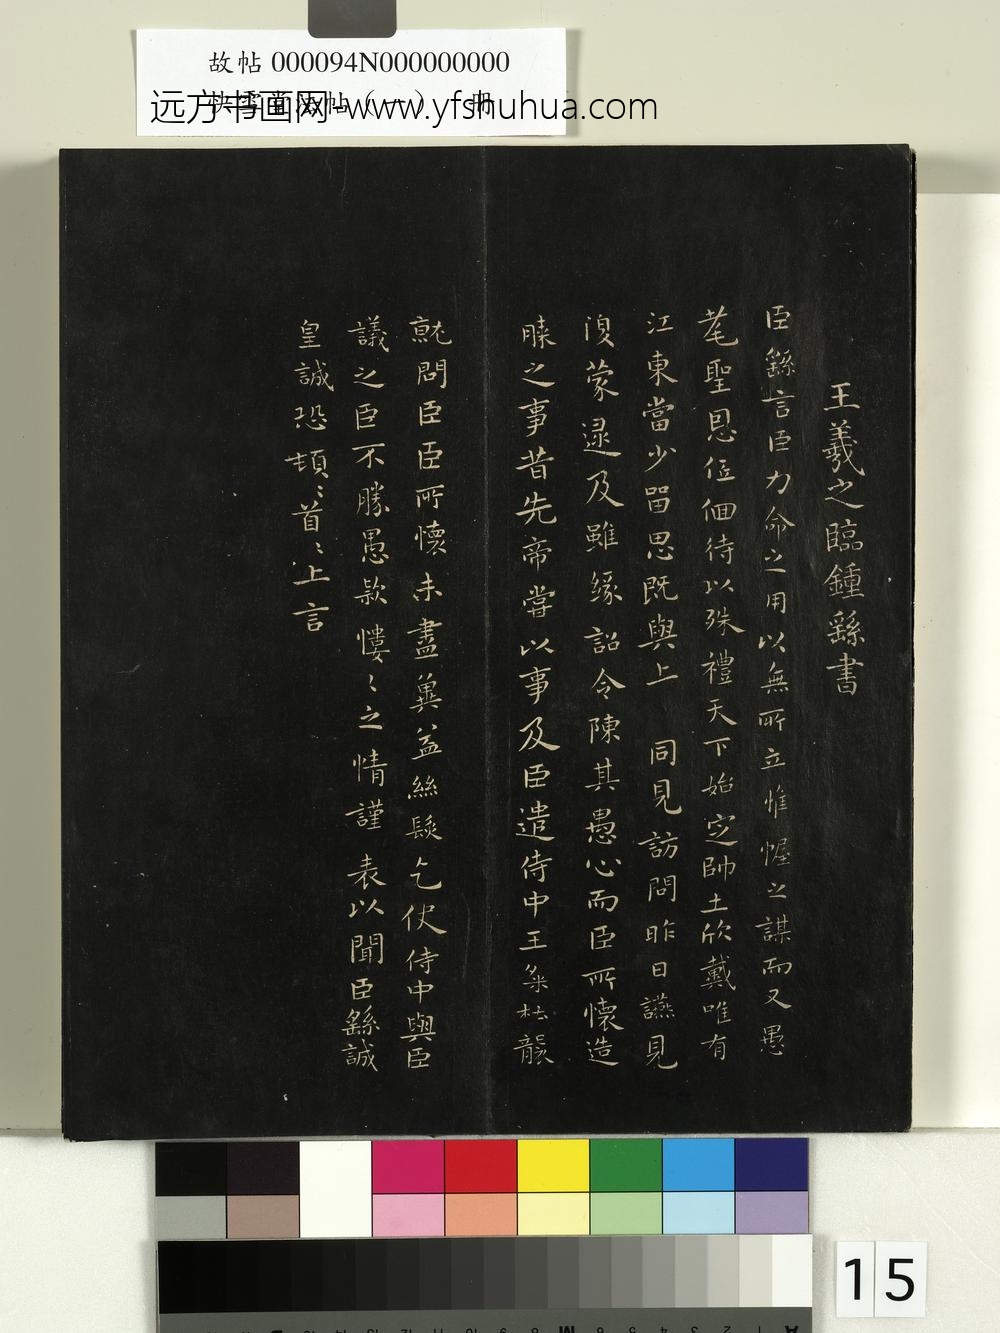 故帖 000094N000000000
快雪堂法帖（一） 册
远方书画网-www.yfshuhua.com
王羲之臨鍾繇書
臣繇言臣力命之用以無所立惟幄之謀而又愚
耄聖恩低佪待以殊禮天下始定帥土欣戴唯有
江東當少留思既與上 同見訪問昨日讌見
復蒙逮及雖緣詔令陳其愚心而臣所懷造
膝之事昔先帝嘗以事及臣遣侍中王粲杜襲
就問臣臣所懷未盡冀益絲髮乞使侍中與臣
議之臣不勝愚款慺〻之情謹 表以聞臣繇誠
皇誠恐頓〻首〻上言
15